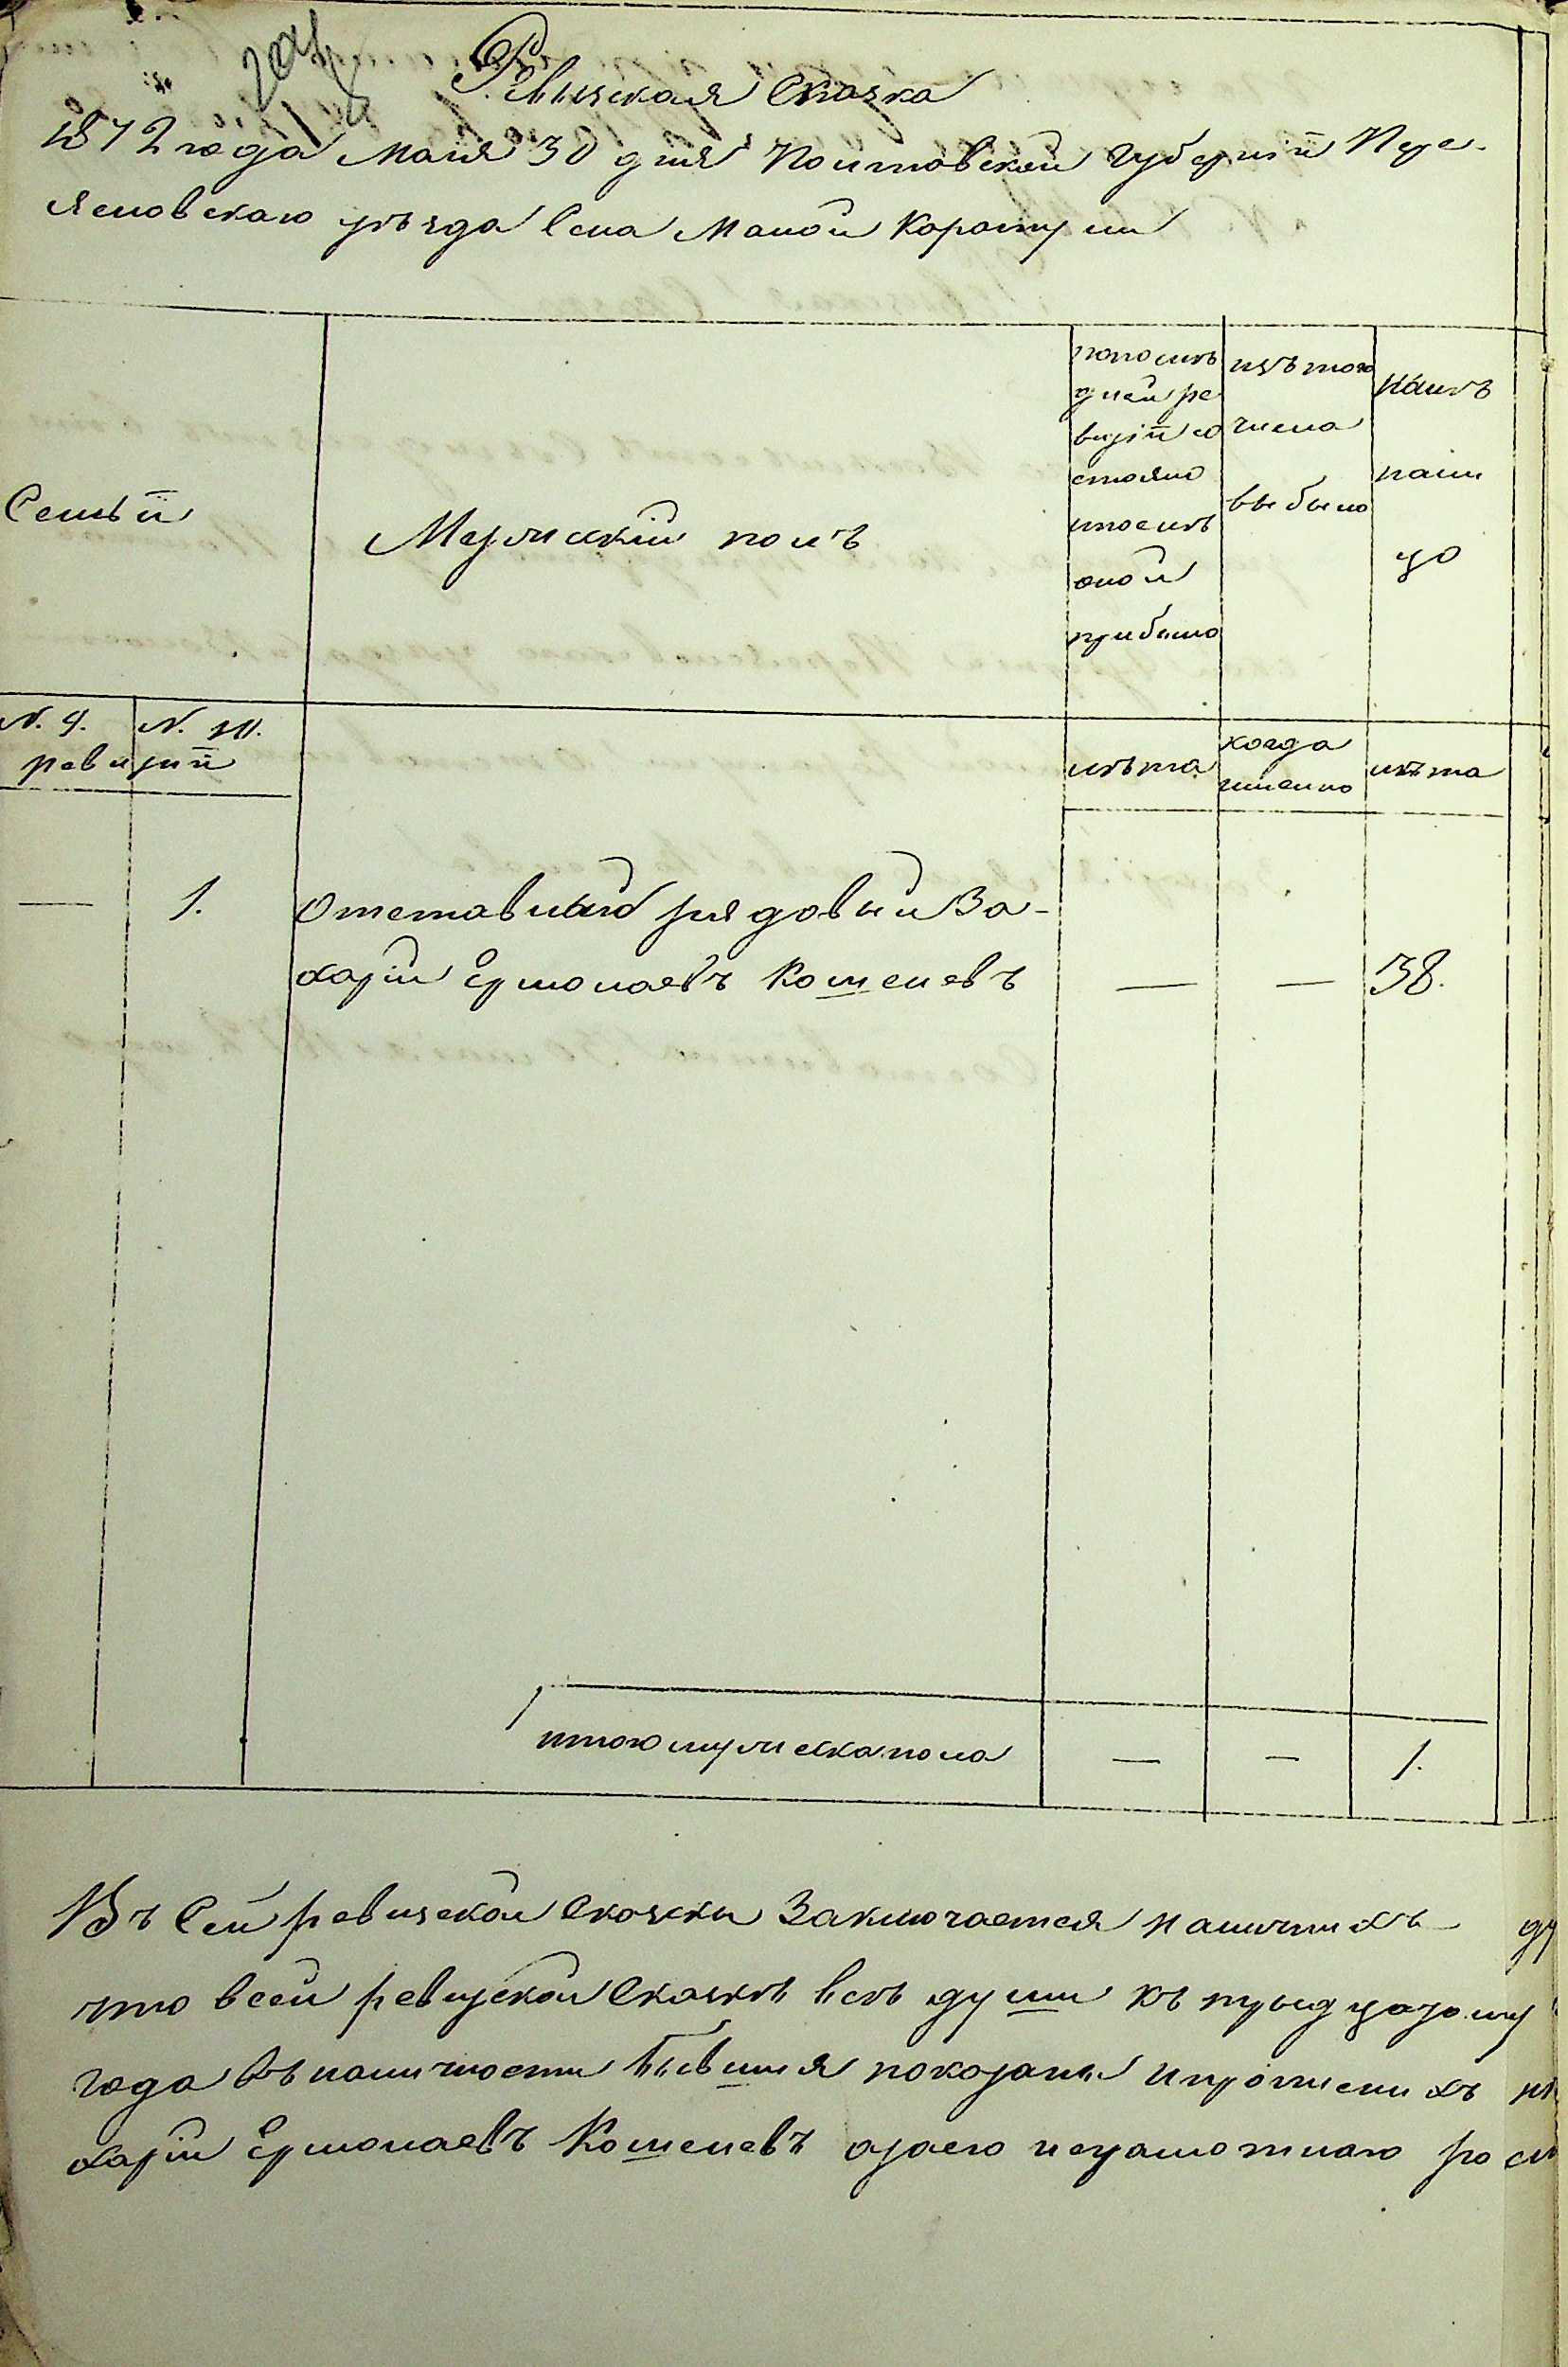 Ревизская Сказка
1872 года Мая 30 дня Полтовской Губернїи Пере-
ясловскаго уѣзда Села Малой Каратули
Семьи
Мужескїй полъ
по последней ревизїи состояло и после оной прибыло
изъ того числа выбыло
нынѣ на лицо
N. 9. N. 10.
ревизїи
лѣта
когда именно
лѣта
— 1. Отставной рядовый За-
харїй Ермолаевъ Кошелевъ — — 38.
итого мужеска пола — — 1.
Въ сей ревизской Сказки Заключается наличныхъ
что в сей ревизской Сказкѣ всѣ души къ трыдцатому
года въ наличности бывшия показаны и прописныхъ
харїй Ермолаевъ Кошелевъ а за его неграмотнаго